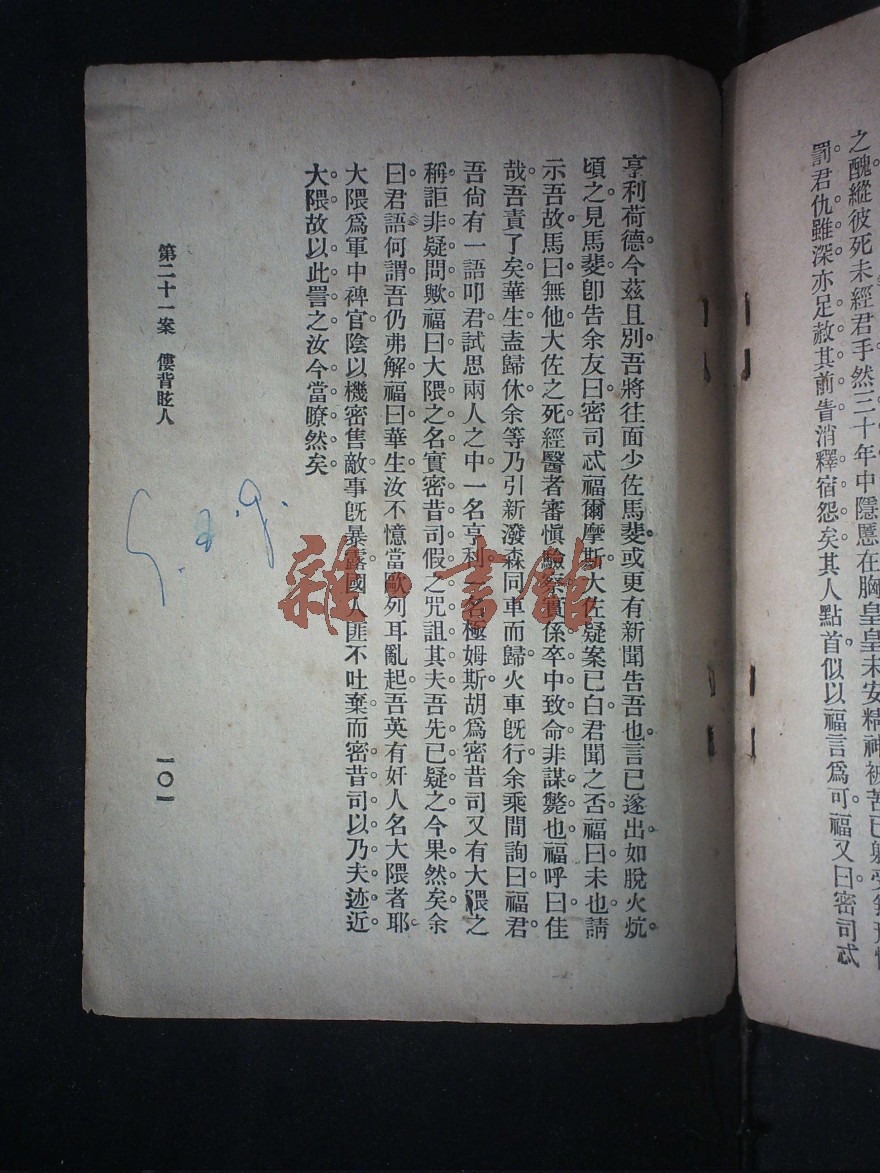 之醜縱彼死未經君手然三十年中隱慝在胸皇皇未安精神被苦已
罰君仇雖深亦足赦其前眚消釋宿怨矣其人點首似以福言爲可福又曰密司忒
亨利荷德今茲且別吾將往面少佐馬斐或更有新聞告吾也言已遂出如脫火炕
頃之見馬斐卽告余友曰密司忒福爾摩斯大佐疑案已白君聞之否福曰未也請
示吾故馬曰無他大佐之死經醫者審愼驗察實係卒中致命非謀斃也福呼曰佳
哉吾責了矣華生盍歸休余等乃引新潑森同車而歸火車旣行余乘間詢曰福君
吾尙有一語叩君試思兩人之中一名亨利一名極姆斯胡爲密昔司又有大隈之
稱詎非疑問歟福曰大隈之名實密昔司假之咒詛其夫吾先已疑之今果然矣余
曰君語何謂吾仍弗解福曰華生汝不憶當歐列耳亂起吾英有奸人名大隈者耶
大隈爲軍中裨官陰以機密售敵事旣暴露國人匪不吐棄而密昔司以乃夫迹近
大隈故以此詈之汝今當瞭然矣
第二十一案 傴背眩人
一〇一
雜·書館